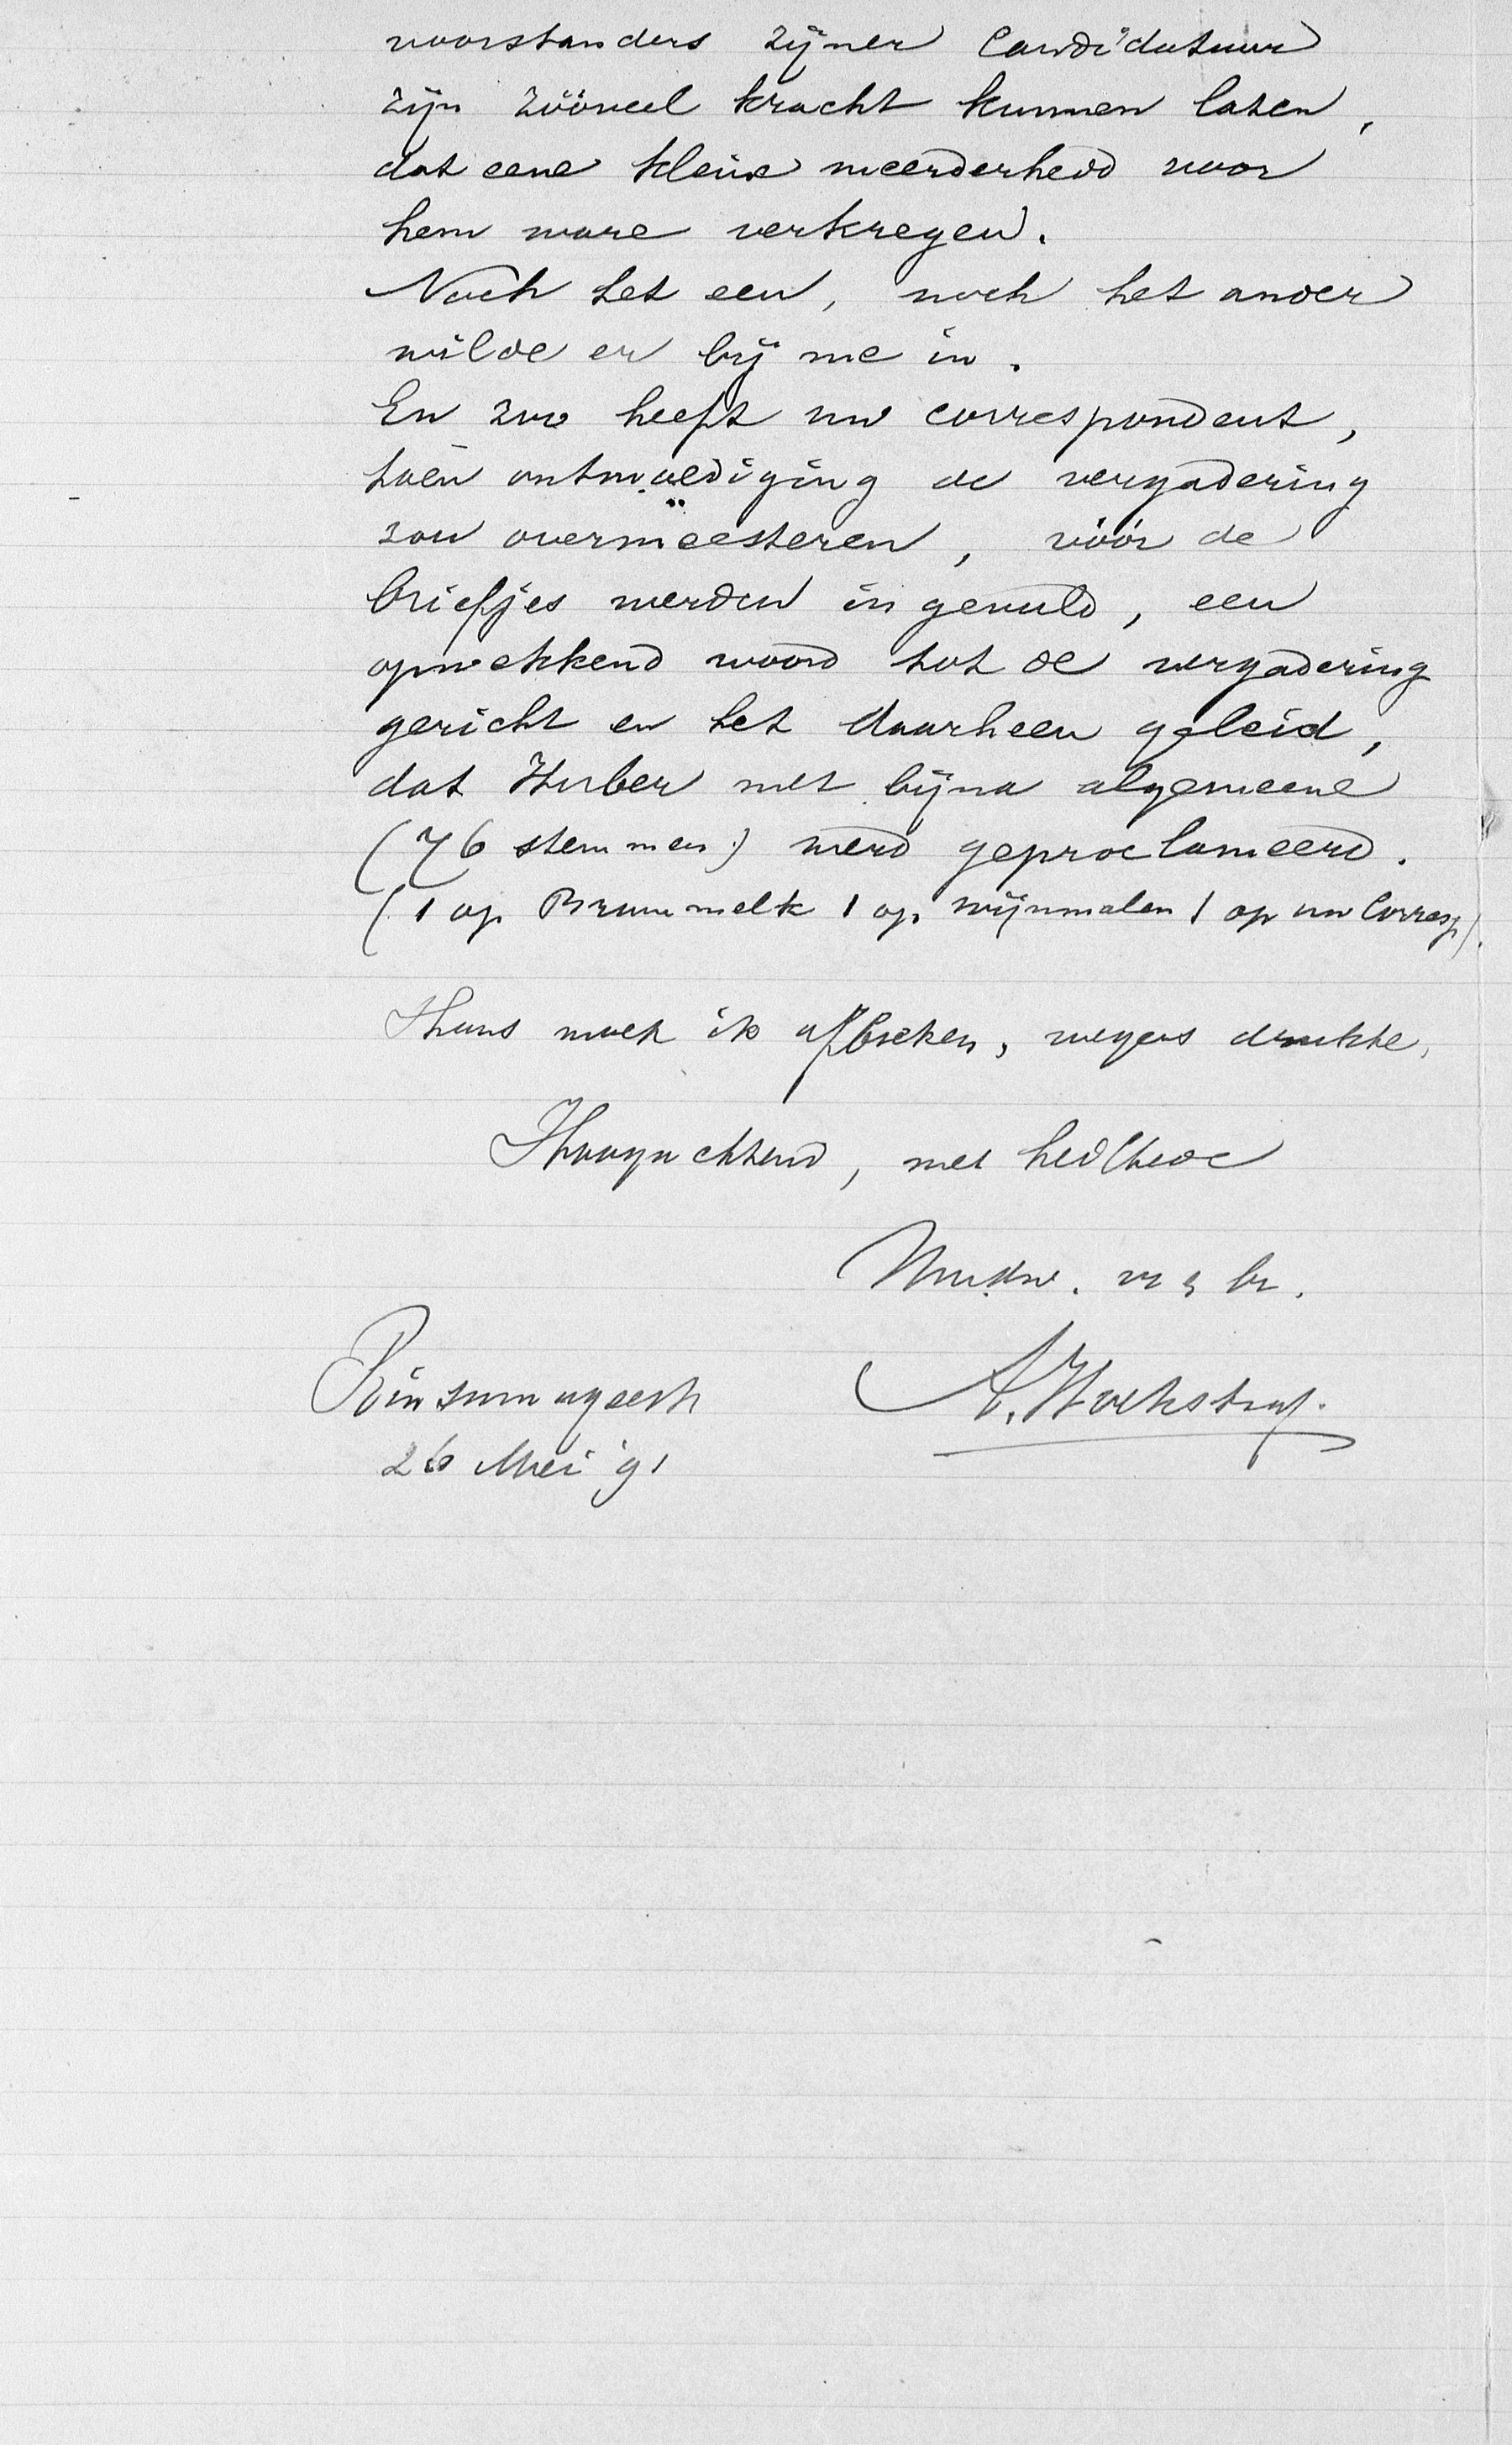 voorstanders zijner Candidatuur
zijn zóóveel kracht kunnen laten,
dat eene kleine meerderheid voor
hem ware verkregen.
Noch het een, noch het ander
wilde er bij me in.
En zoo heeft uw correspondent,
toen ontmoediging de vergadering
zou overmeesteren, vóór de
briefjes werden ingevuld, een
opwekkend woord tot de vergadering
gericht en het daarheen geleid,
dat Huber met bijna algemeene
(76 stemmen) werd geproclameerd.
(1 op Brummelk 1 op Wijnmalen 1 op uw Corresp).
Thans moet ik afbreken, wegens drukte,
Hoogachtend, met heilbede
Uwdw. vr & br.
Rinsumageest A. Hoekstra
26 Mei '91